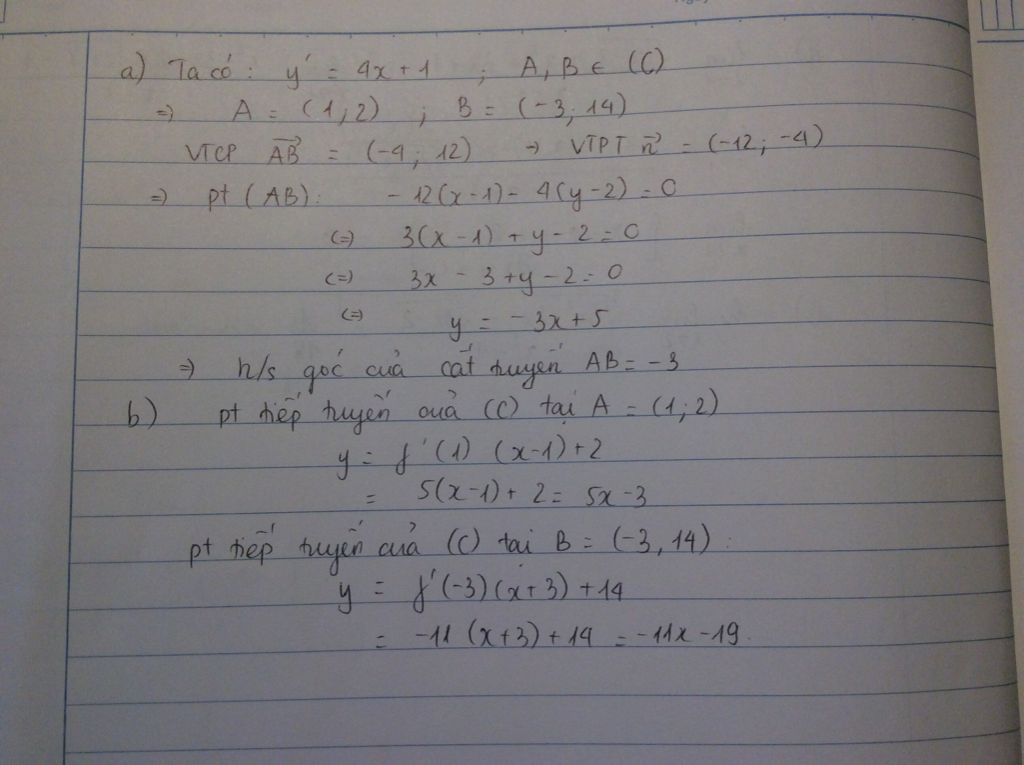 a) Ta có : y' = 4x + 1 ; A, B ∈ (C)
=> A = (1; 2) ; B = (-3; 14)
VTCP AB→ = (-4; 12) → VTPT n→ = (-12; -4)
=> pt (AB): -12(x-1) - 4(y-2) = 0
(=) 3(x-1) + y - 2 = 0
(=) 3x - 3 + y - 2 = 0
(=) y = -3x + 5
=> h/s góc của cát tuyến AB = -3
b) pt tiếp tuyến của (C) tại A = (1; 2)
y = f'(1) (x-1) + 2
= 5(x-1) + 2 = 5x - 3
pt tiếp tuyến của (C) tại B = (-3, 14) :
y = f'(-3) (x+3) + 14
= -11 (x+3) + 14 = -11x - 19.